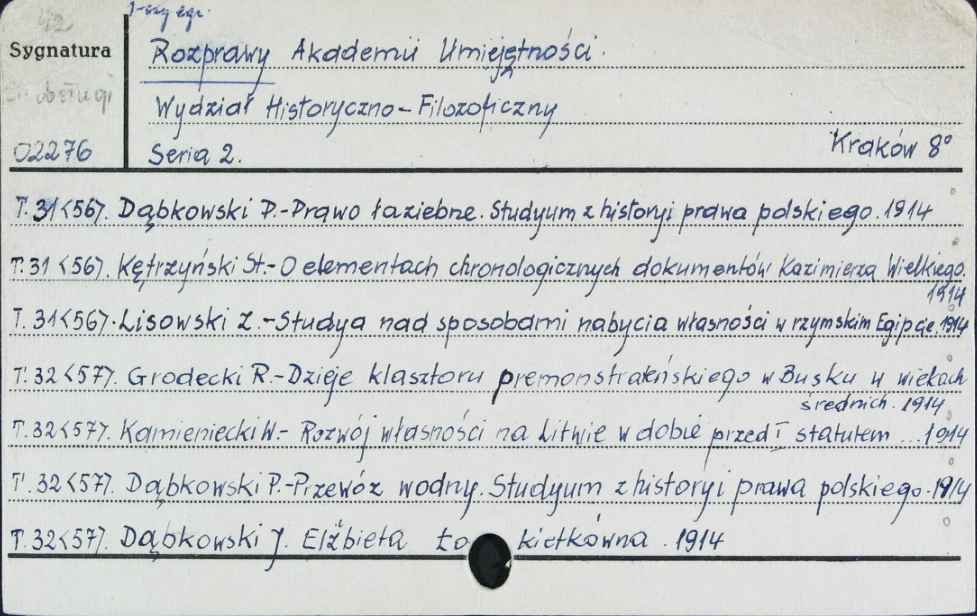 42 1-szy egz.
Sygnatura Rozprawy Akademii Umiejętności.
Wydział Historyczno-Filozoficzny
02276 Seria 2. Kraków 8°
T. 31<56>. Dąbkowski P.-Prawo łaziebne. Studyum z historyi prawa polskiego. 1914
T. 31<56>. Kętrzyński St.-O elementach chronologicznych dokumentów Kazimierza Wielkiego.
1914
T. 31<56>. Lisowski Z.-Studya nad sposobami nabycia własności w rzymskim Egipcie. 1914
T. 32<57>. Grodecki R.-Dzieje klasztoru premonstrateńskiego w Busku w wiekach
średnich. 1914
T. 32<57>. Kamieniecki W.- Rozwój własności na Litwie w dobie przed I statutem ... 1914
T. 32<57>. Dąbkowski P.-Przewóz wodny. Studyum z historyi prawa polskiego. 1914
T. 32<57>. Dąbkowski J. Elżbieta Łokietkówna . 1914